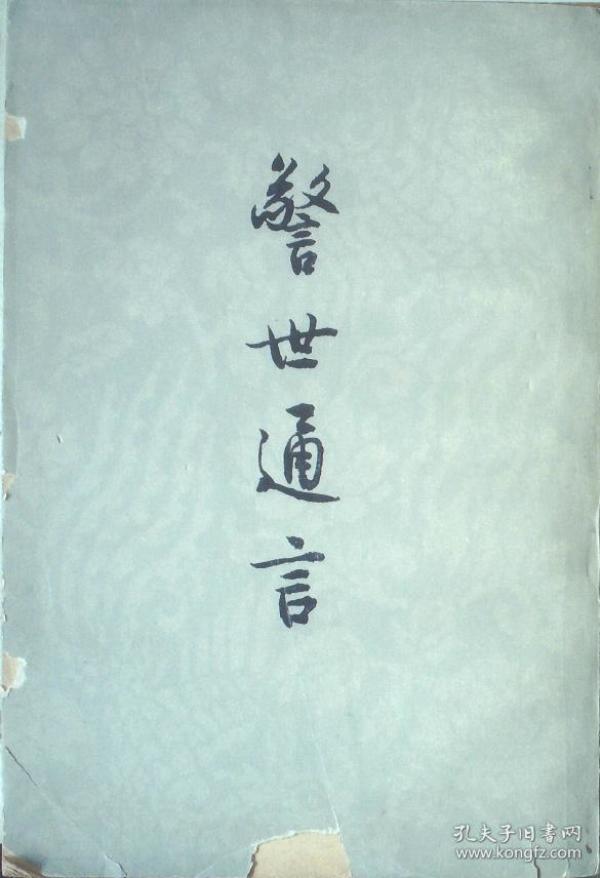 警世通言
孔夫子旧書网
www.kongfz.com